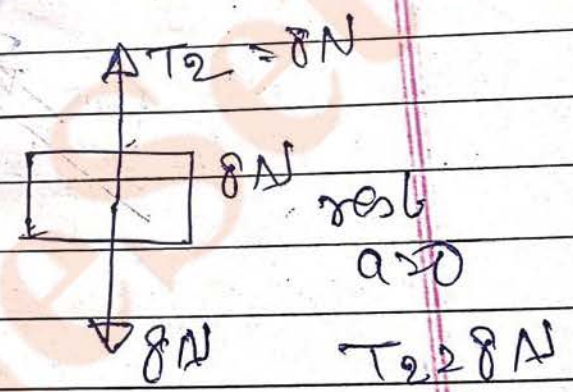 T2 = 8N
8N
rest
a=0
8N
T2=8N